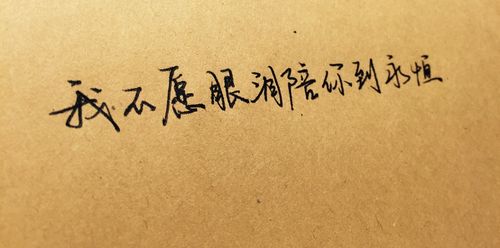 我不愿眼泪陪你到永恒